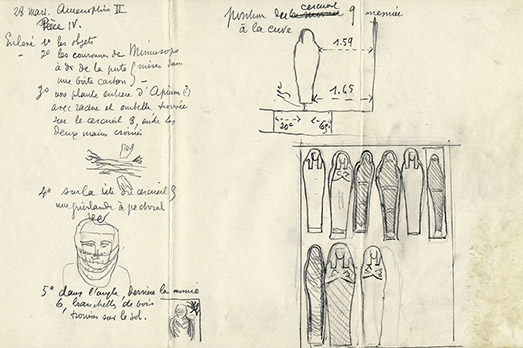 28 mars. Amenophis II
Pièce IV.
Enlevé 1º les objets
- 2º les couronnes de Mimusops
à dr de la porte (mises dans
une boîte carton) -
3º une plante entière d'Apium (?)
avec racine et ombelle trouvée
sur le cercueil 8, entre les
deux mains croisées
4º sur la tête du cercueil
une guirlande à pectoral
5º dans l'angle derrière la momie
6, branchelles de bois
trouvées sur le sol.
position du cercueil 9 momie
à la cuve
1.59
1.65
20c
65c